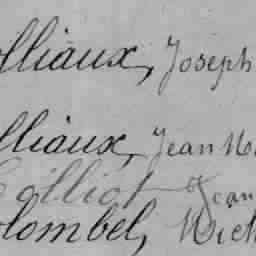 olliaux, Joseph
lliaux, Jean
Colliot Jean
olombel, Mich